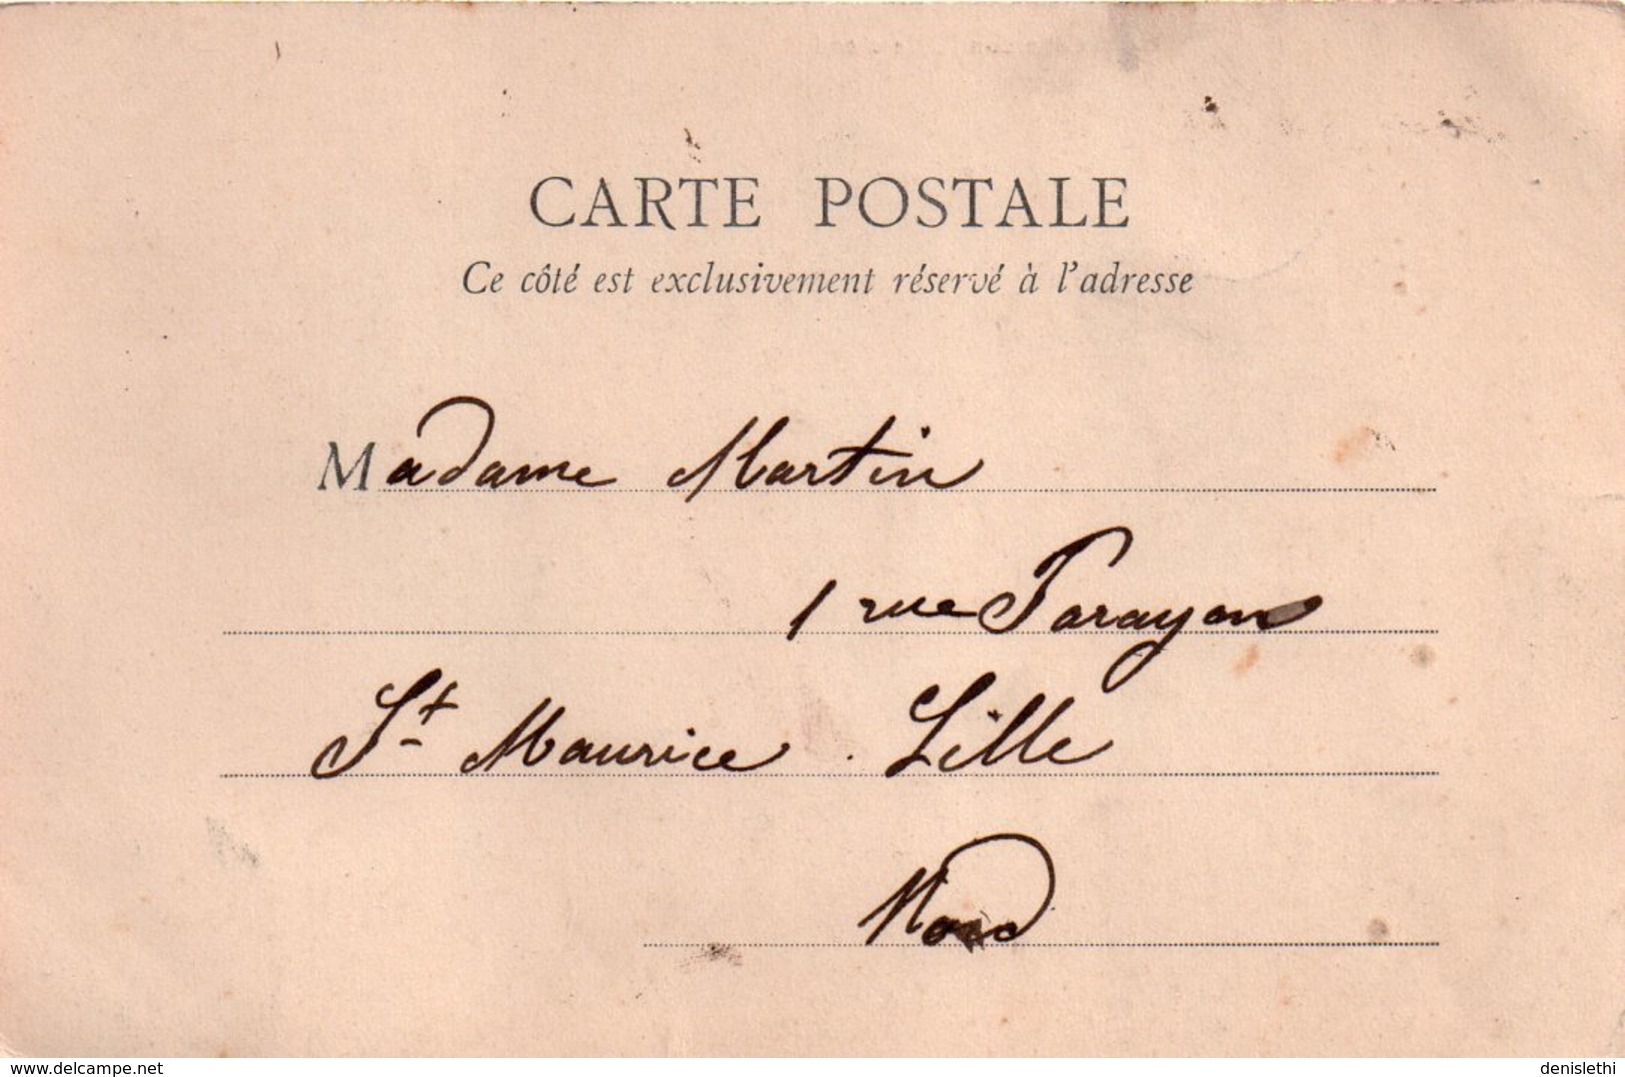 CARTE POSTALE
Ce côté est exclusivement réservé à l'adresse
Madame Martin
1 rue Parayon
St Maurice . Lille
Nord
www.delcampe.net
denislethi